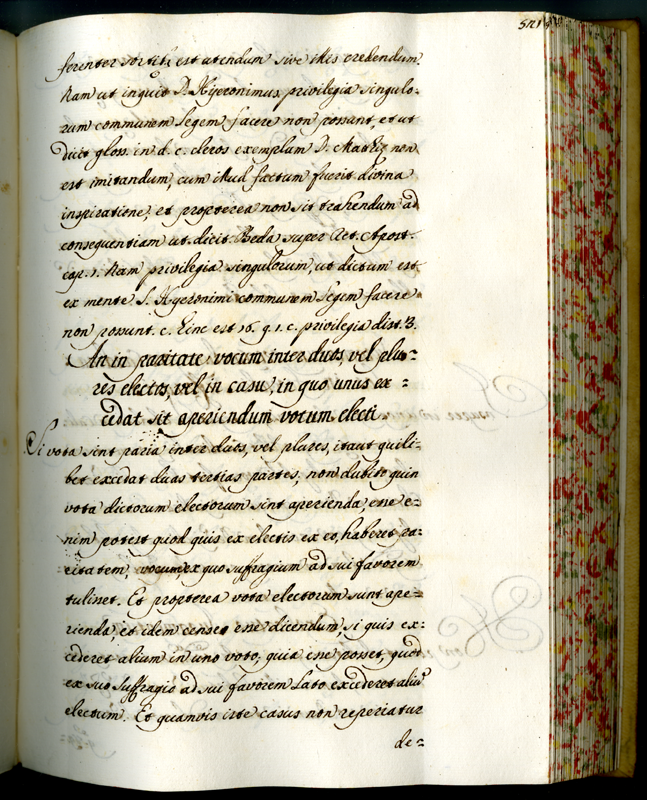 521
ferenter sortib; est utendum sive illis credendum.
Nam ut inquit D. Hyeronimus privilegia singulo:
rum communem legem facere non possunt, et ut
dicit gloss. in d. c. cleros exemplum D. Mathię non
est imitandum, cum illud factum fuerit divina
inspiratione, et propterea non sit trahendum ad
consequentiam ut dicit Beda super Act. Apost.
cap. 1. Nam privilegia singulorum, ut dictum est
ex mente S. Hyeronimi communem legem facere
non possunt. c. hinc est 16. q. 1. c. privilegia dist. 3.
An in paritate vocum inter duos, vel plu=
res electos, vel in casu, in quo unus ex =
cedat sit aperiendum votum electi.
Si vota sint paria inter duos, vel plures, itaut quili=
bet excedat duas tertias partes, non dubito quin
vota dictorum electorum sint aperienda, esse e=
nim potest quod quis ex electis ex eo, haberet pa=
ritatem, vocum, ex quo suffragium ad sui favorem
tulisset. Et propterea vota electorum sunt ape=
rienda, et idem censeo esse dicendum, si quis ex=
cederet alium in uno voto, quia esse posset, quod
ex suo suffragio ad sui favorem lato excederet aliũ
electum. Et quamvis iste casus non reperiatur
de=